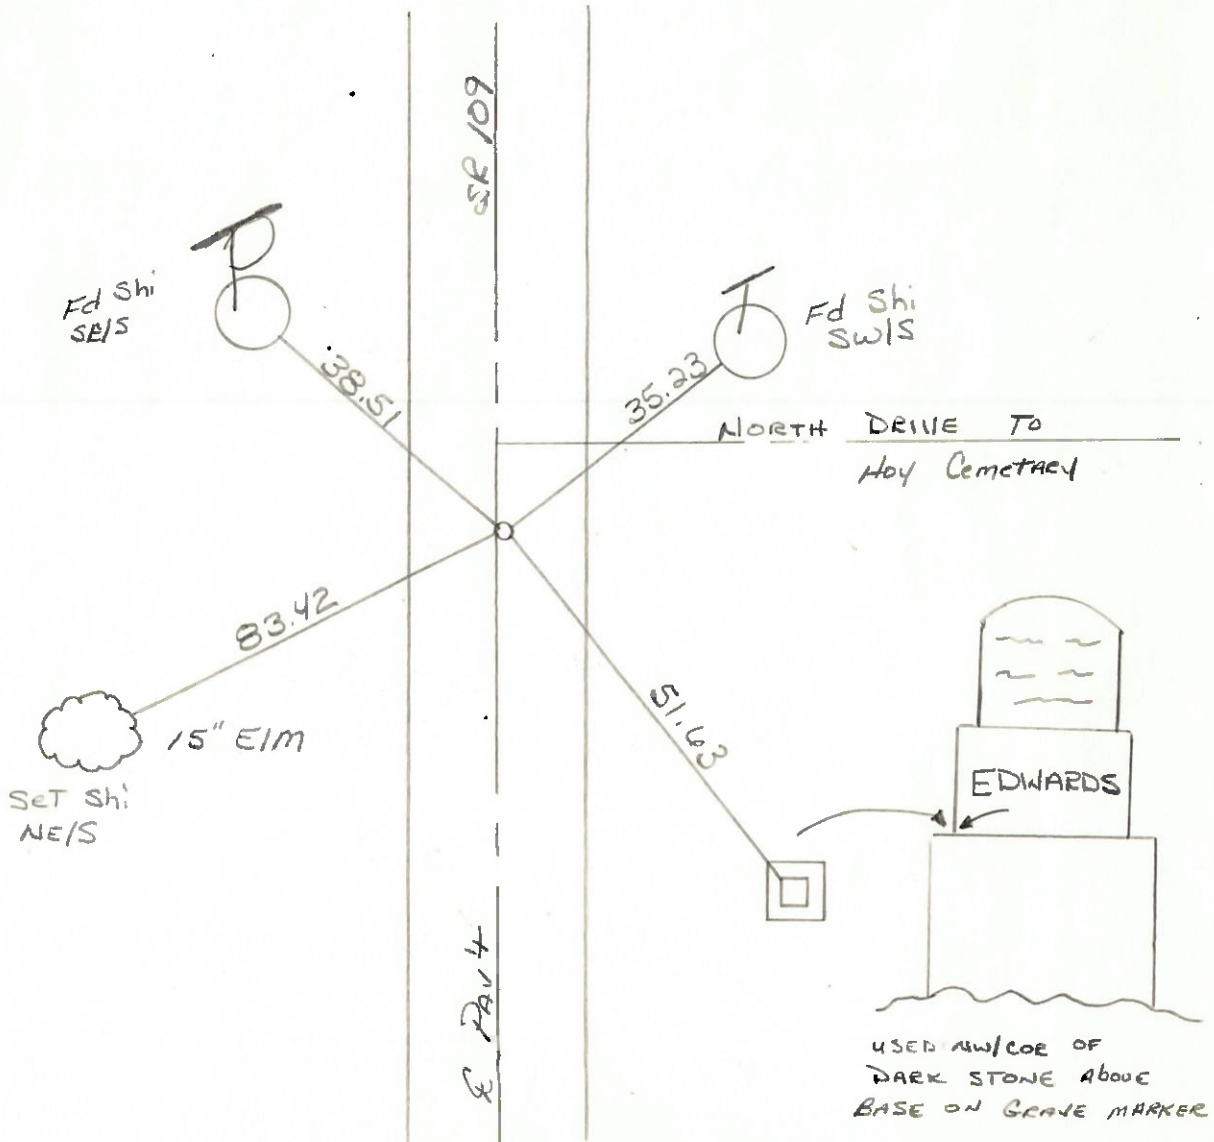 SR 109
Fd Shi
SE/S
Fd Shi
SW/S
38.51
35.23
NORTH DRIVE TO
Hoy Cemetary
83.42
15" Elm
Set Shi
NE/S
51.63
EDWARDS
℄ Pav't
USED NW/COR OF
DARK STONE Above
BASE ON GRAVE MARKER